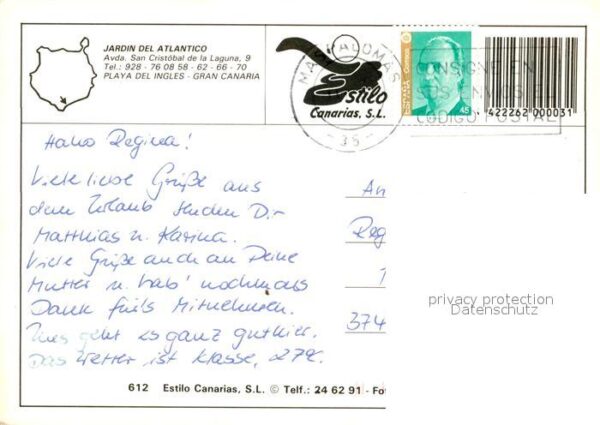 JARDIN DEL ATLANTICO
Avda. San Cristóbal de la Laguna, 9
Tel.: 928 - 76 08 58 - 62 - 66 - 70
PLAYA DEL INGLES - GRAN CANARIA
Estilo
Canarias, S.L.
MASPALOMAS
- 35 -
CONSIGNE EN
SUS ENVIOS EL
CODIGO POSTAL
ESPAÑA
CORREOS
45
422262 000031
Hallo Regina!
Viele liebe Grüße aus
dem Urlaub senden Dir
Matthias u. Karina.
Viele Grüße auch an Deine
Mutter u. hab' nochmals
Dank fürs Mitnehmen.
Uns geht es ganz gut hier.
Das Wetter ist klasse, 27°C.
An
Reg
1
374
privacy protection
Datenschutz
612 Estilo Canarias, S.L. © Telf.: 24 62 91 - Fo